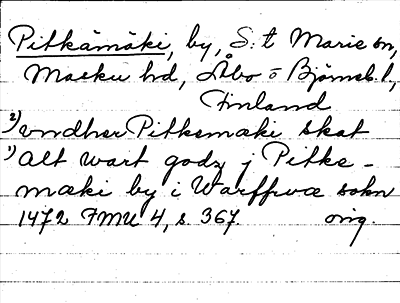 Pitkämäki, by, S:t Marie sn,
Masku hd, Åbo o Björneb. l,
Finland
2) vndher Pitkemäki skat
1) alt wart godz j Pitke-
mæki by i Warffrwæ sokn
1472 FMU 4, s. 367. orig.